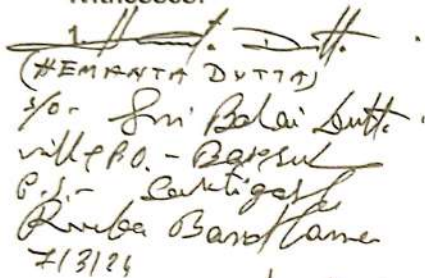 Witnesses:
1. Hemanta Dutta.
(HEMANTA DUTTA)
S/o- Sri Balai Dutta.
vill & P.O. - Barsul
P.S.- Saktigarh
Purba Bardhaman
7/3/24